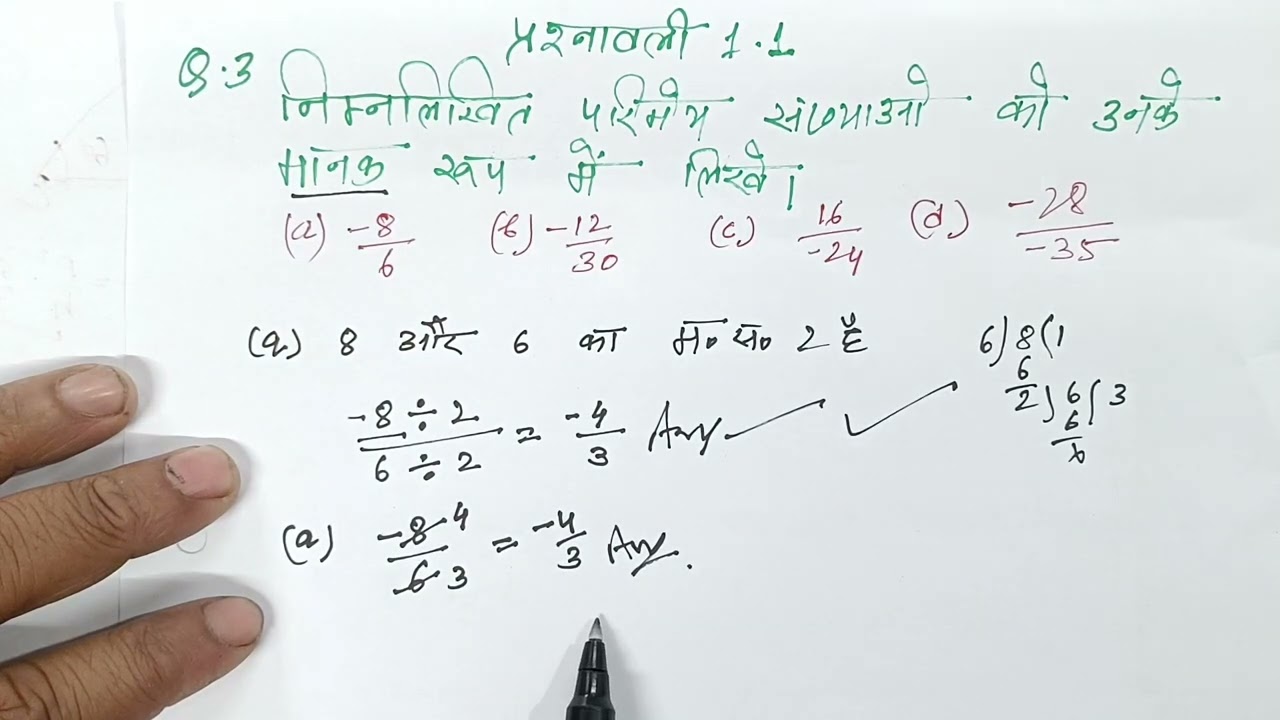 प्रश्नावली 1.1
Q.3 निम्नलिखित परिमेय संख्याओ को उनके
मानक रूप में लिखे।
(a) -8/6 (b) -12/30 (c) 16/-24 (d) -28/-35
(a) 8 और 6 का म० स० 2 है
6)8(1
6
2)6(3
6
-8÷2/6÷2 = -4/3 Ans
(a) -8 4/6 3 = -4/3 Ans.